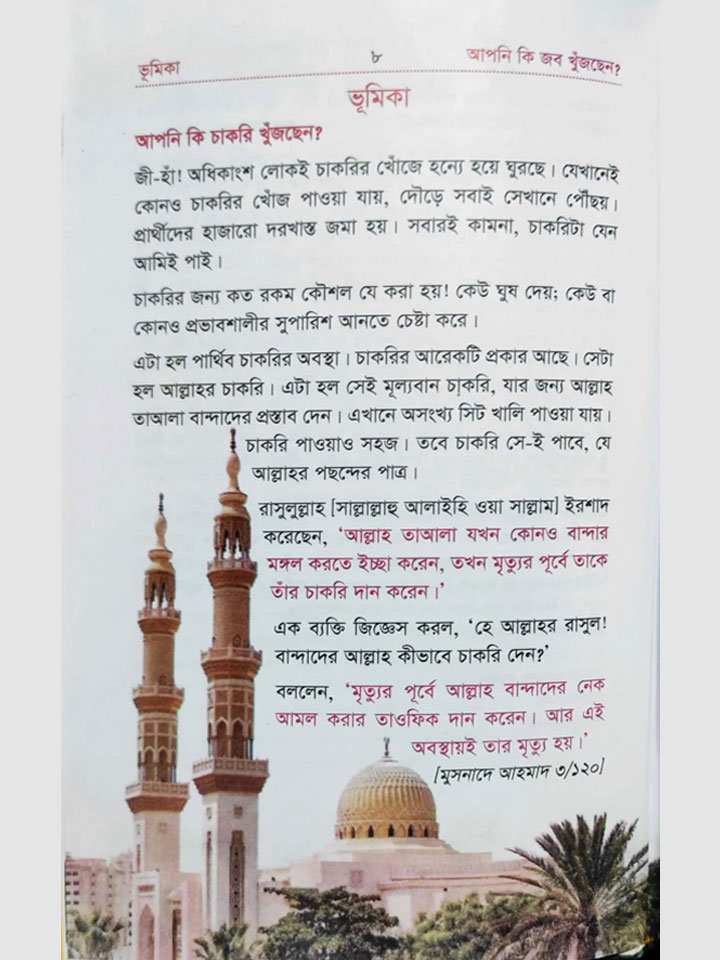 ভূমিকা ৮ আপনি কি জব খুঁজছেন?
ভূমিকা
আপনি কি চাকরি খুঁজছেন?
জী-হাঁ! অধিকাংশ লোকই চাকরির খোঁজে হন্যে হয়ে ঘুরছে। যেখানেই
কোনও চাকরির খোঁজ পাওয়া যায়, দৌড়ে সবাই সেখানে পৌঁছয়।
প্রার্থীদের হাজারো দরখাস্ত জমা হয়। সবারই কামনা, চাকরিটা যেন
আমিই পাই।
চাকরির জন্য কত রকম কৌশল যে করা হয়! কেউ ঘুষ দেয়; কেউ বা
কোনও প্রভাবশালীর সুপারিশ আনতে চেষ্টা করে।
এটা হল পার্থিব চাকরির অবস্থা। চাকরির আরেকটি প্রকার আছে। সেটা
হল আল্লাহর চাকরি। এটা হল সেই মূল্যবান চাকরি, যার জন্য আল্লাহ
তাআলা বান্দাদের প্রস্তাব দেন। এখানে অসংখ্য সিট খালি পাওয়া যায়।
চাকরি পাওয়াও সহজ। তবে চাকরি সে-ই পাবে, যে
আল্লাহর পছন্দের পাত্র।
রাসুলুল্লাহ [সাল্লাল্লাহু আলাইহি ওয়া সাল্লাম] ইরশাদ
করেছেন, ‘আল্লাহ তাআলা যখন কোনও বান্দার
মঙ্গল করতে ইচ্ছা করেন, তখন মৃত্যুর পূর্বে তাকে
তাঁর চাকরি দান করেন।’
এক ব্যক্তি জিজ্ঞেস করল, ‘হে আল্লাহর রাসুল!
বান্দাদের আল্লাহ কীভাবে চাকরি দেন?’
বললেন, ‘মৃত্যুর পূর্বে আল্লাহ বান্দাদের নেক
আমল করার তাওফিক দান করেন। আর এই
অবস্থায়ই তার মৃত্যু হয়।’
[মুসনাদে আহমাদ ৩/১২০]